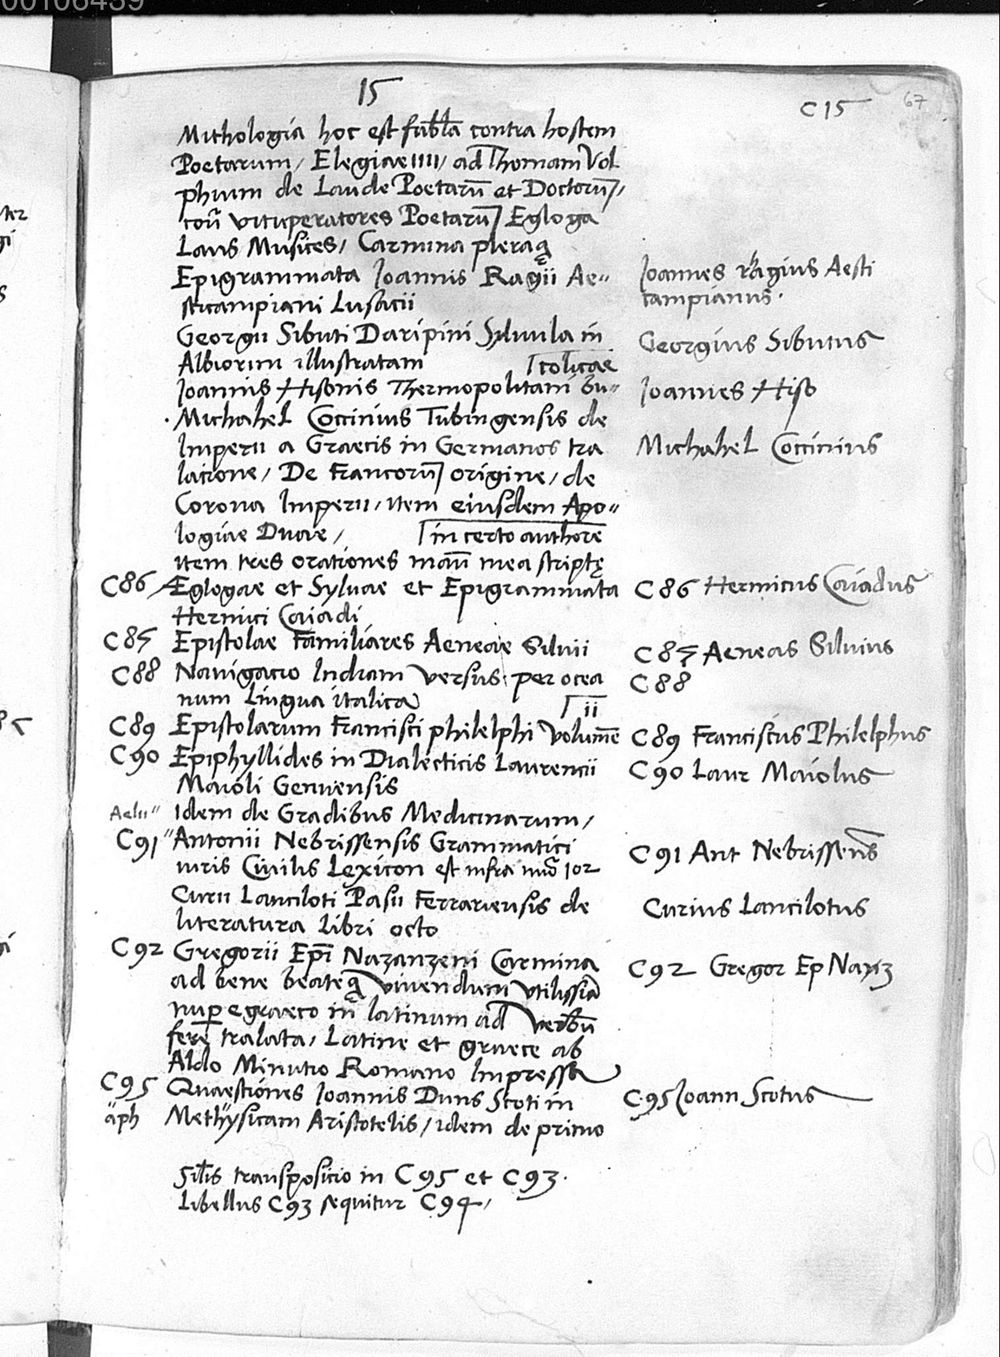 00106439
15
C 15
67
Mithologia hoc est fabła contra hostem
Poetarum, Elegiae IIII, ad Thomam Vol
phium de Laude Poetarū et Doctorū,
coñ vituperatores Poetarū Egloga
Laus Musices, Carmina pleraq̨
Epigrammata Joannis Ragii Ae-
sticampiani Lusacii
Joannes Rhagius Aesti
campianus.
Georgii Sibuti Daripini Siluula in
Albiorim illustratam
Georgius Sibutus
Joannis Hisonis Thermopolitani Bu-
colicae
Joannes Hiso
Michahel Coccinius Tubingensis de
Imperii a Graecis in Germanos tra
latione, De Francorū origine, de
Corona Imperii, item eiusdem Apo-
logiae Duae,
Michahel Coccinius
item tres orationes manū mea scriptę
incerto authore
C86 Æglogae et Syluae et Epigrammata
Hermici Caiadi
C86 Hermicus Caiadus
C87 Epistolae Familiares Aeneae Siluii
C87 Aeneas Siluius
C88 Nauigatio Indram versus per ocea
num Lingua italica
C88
C89 Epistolarum Francisci philelphi Volumē
ii
C89 Franciscus Philelphus
C90 Epiphyllides in Dialecticis Laurencii
Maioli Genuensis
C90 Laur Maiolus
Aelii" Idem de Gradibus Medicinarum,
C91 "Antonii Nebrissensis Grammatici
iuris Ciuilis Lexicon est infra nūo 102
C91 Ant Nebrissens̄
Curii Lanciloti Pasii Ferrariensis de
literatura Libri octo
Curius Lancilotus
C92 Gregorii Epī Nazanzeni Carmina
ad bene beateq̨ viuendum vtilissīa
nup̱ e graeco in latinum ad verbū
fere tralata, Latine et graece ab
Aldo Minutio Romano Impressa
C92 Gregor Ep Nazz
C95 Quaestiones Joannis Duns Scoti in
äph Methÿsicam Aristotelis, idem de primo
C95 Joann Scotus
Siłis transpositio in C95 et C93.
Libellus C93 sequitur C94,